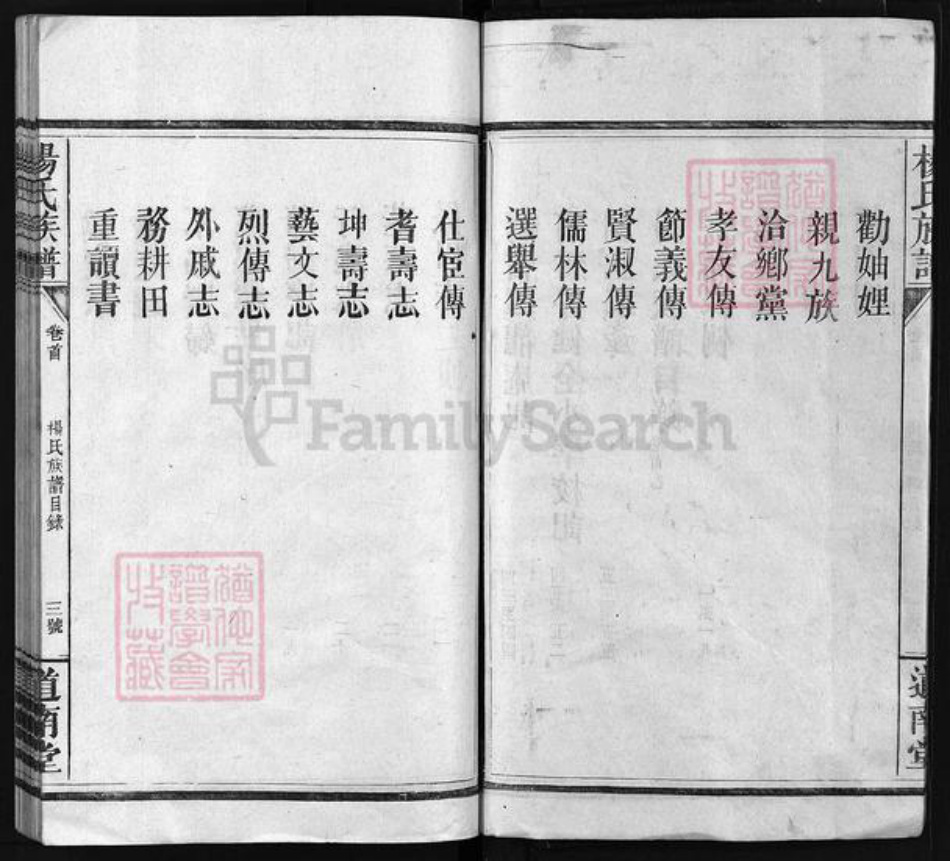 楊氏族譜
道南堂
勸妯娌
親九族
洽鄉黨
孝友傳
節義傳
賢淑傳
儒林傳
選舉傳
仕宦傳
耆壽志
坤壽志
藝文志
烈傳志
外戚志
務耕田
重讀書
楊氏族譜
卷首
楊氏族譜目錄
三號
道南堂
猶他家譜學會收藏
猶他家譜學會收藏
FamilySearch